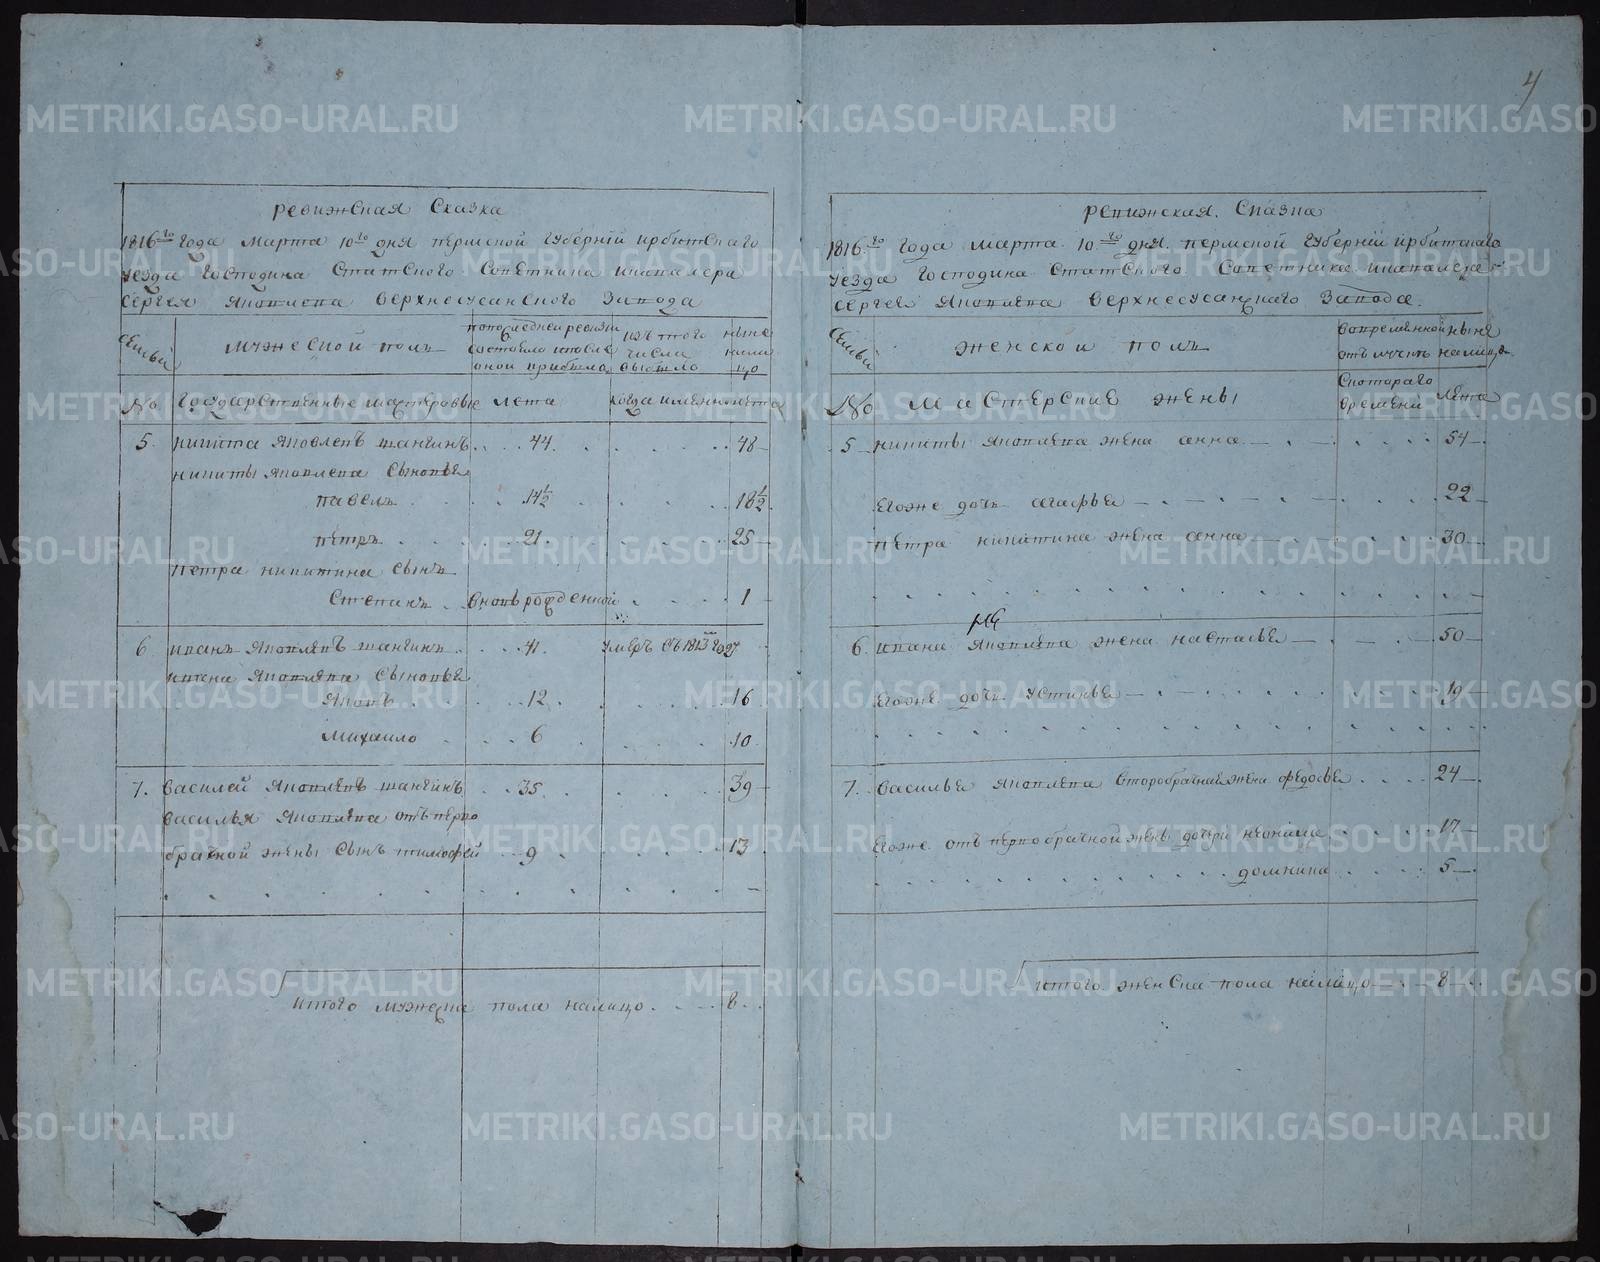 4
ревижская Сказка
1816го года марта 10го дня пермской губернiи ирбитскаго
уезда господина статского Советника икавалера
Сергея Яковлева верхнесусанского завода
Семьи
мужеской полъ
попоследней ревизiи состояло ипосле оной прибыло
изъ того числа выбыло
ныне налицо
No
государственные мастеровые
лета
когда именно
лета
5. никита Яковлевъ шангинъ . . 44 . . . . . 48
никиты яковлева Сыновья
павелъ . . . . 14 1/2 . . . . 18 1/2
петръ . . . . 21 . . . . 25
петра никитина сынъ
Степанъ . вновь рожденной . . . . 1
6 иванъ Яковлевъ шангинъ . . . 41. умеръ въ 1813 году
ивана Яковлева Сыновья
Яковъ . . . . 12 . . . . 16
михаило . . . 6 . . . . 10
7. василей Яковлевъ шангинъ . . 35 . . . . 39
василья Яковлева отъ перво
брачной жены сынъ тимофей . . 9 . . . . 13
итого мужеска пола налицо . . . 8
ревижская. Сказка
1816го года марта 10го дня. пермской губернiи ирбитскаго
уезда господина статского. Советника икавалера
Сергея Яковлева верхнесусанскаго завода.
Семьи
женской полъ
вовременной отлучке
ныне налицо
No
мастерские жены
Скотораго времени
лета
5 никиты Яковлева жена анна . . . 54
Егоже дочь агафья . . . 22
петра никитина жена анна . . . 30
6. ивана Яковлева жена настасья . . . 50
Егоже дочь устинья . . . 19
7. василья Яковлева второбрачная жена федосья . . . . 24
Егоже отъ первобрачной жены дочери неонила . . . . 17
домника . . . . 5
итого женска пола налицо . . 8
METRIKI.GASO-URAL.RU